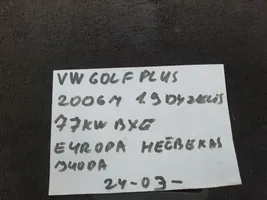 VW GOLF PLUS
2006M 1.9 DYZELIS
77KW BXE
EVROPA HEČBEKAS
JUODA
24-03-